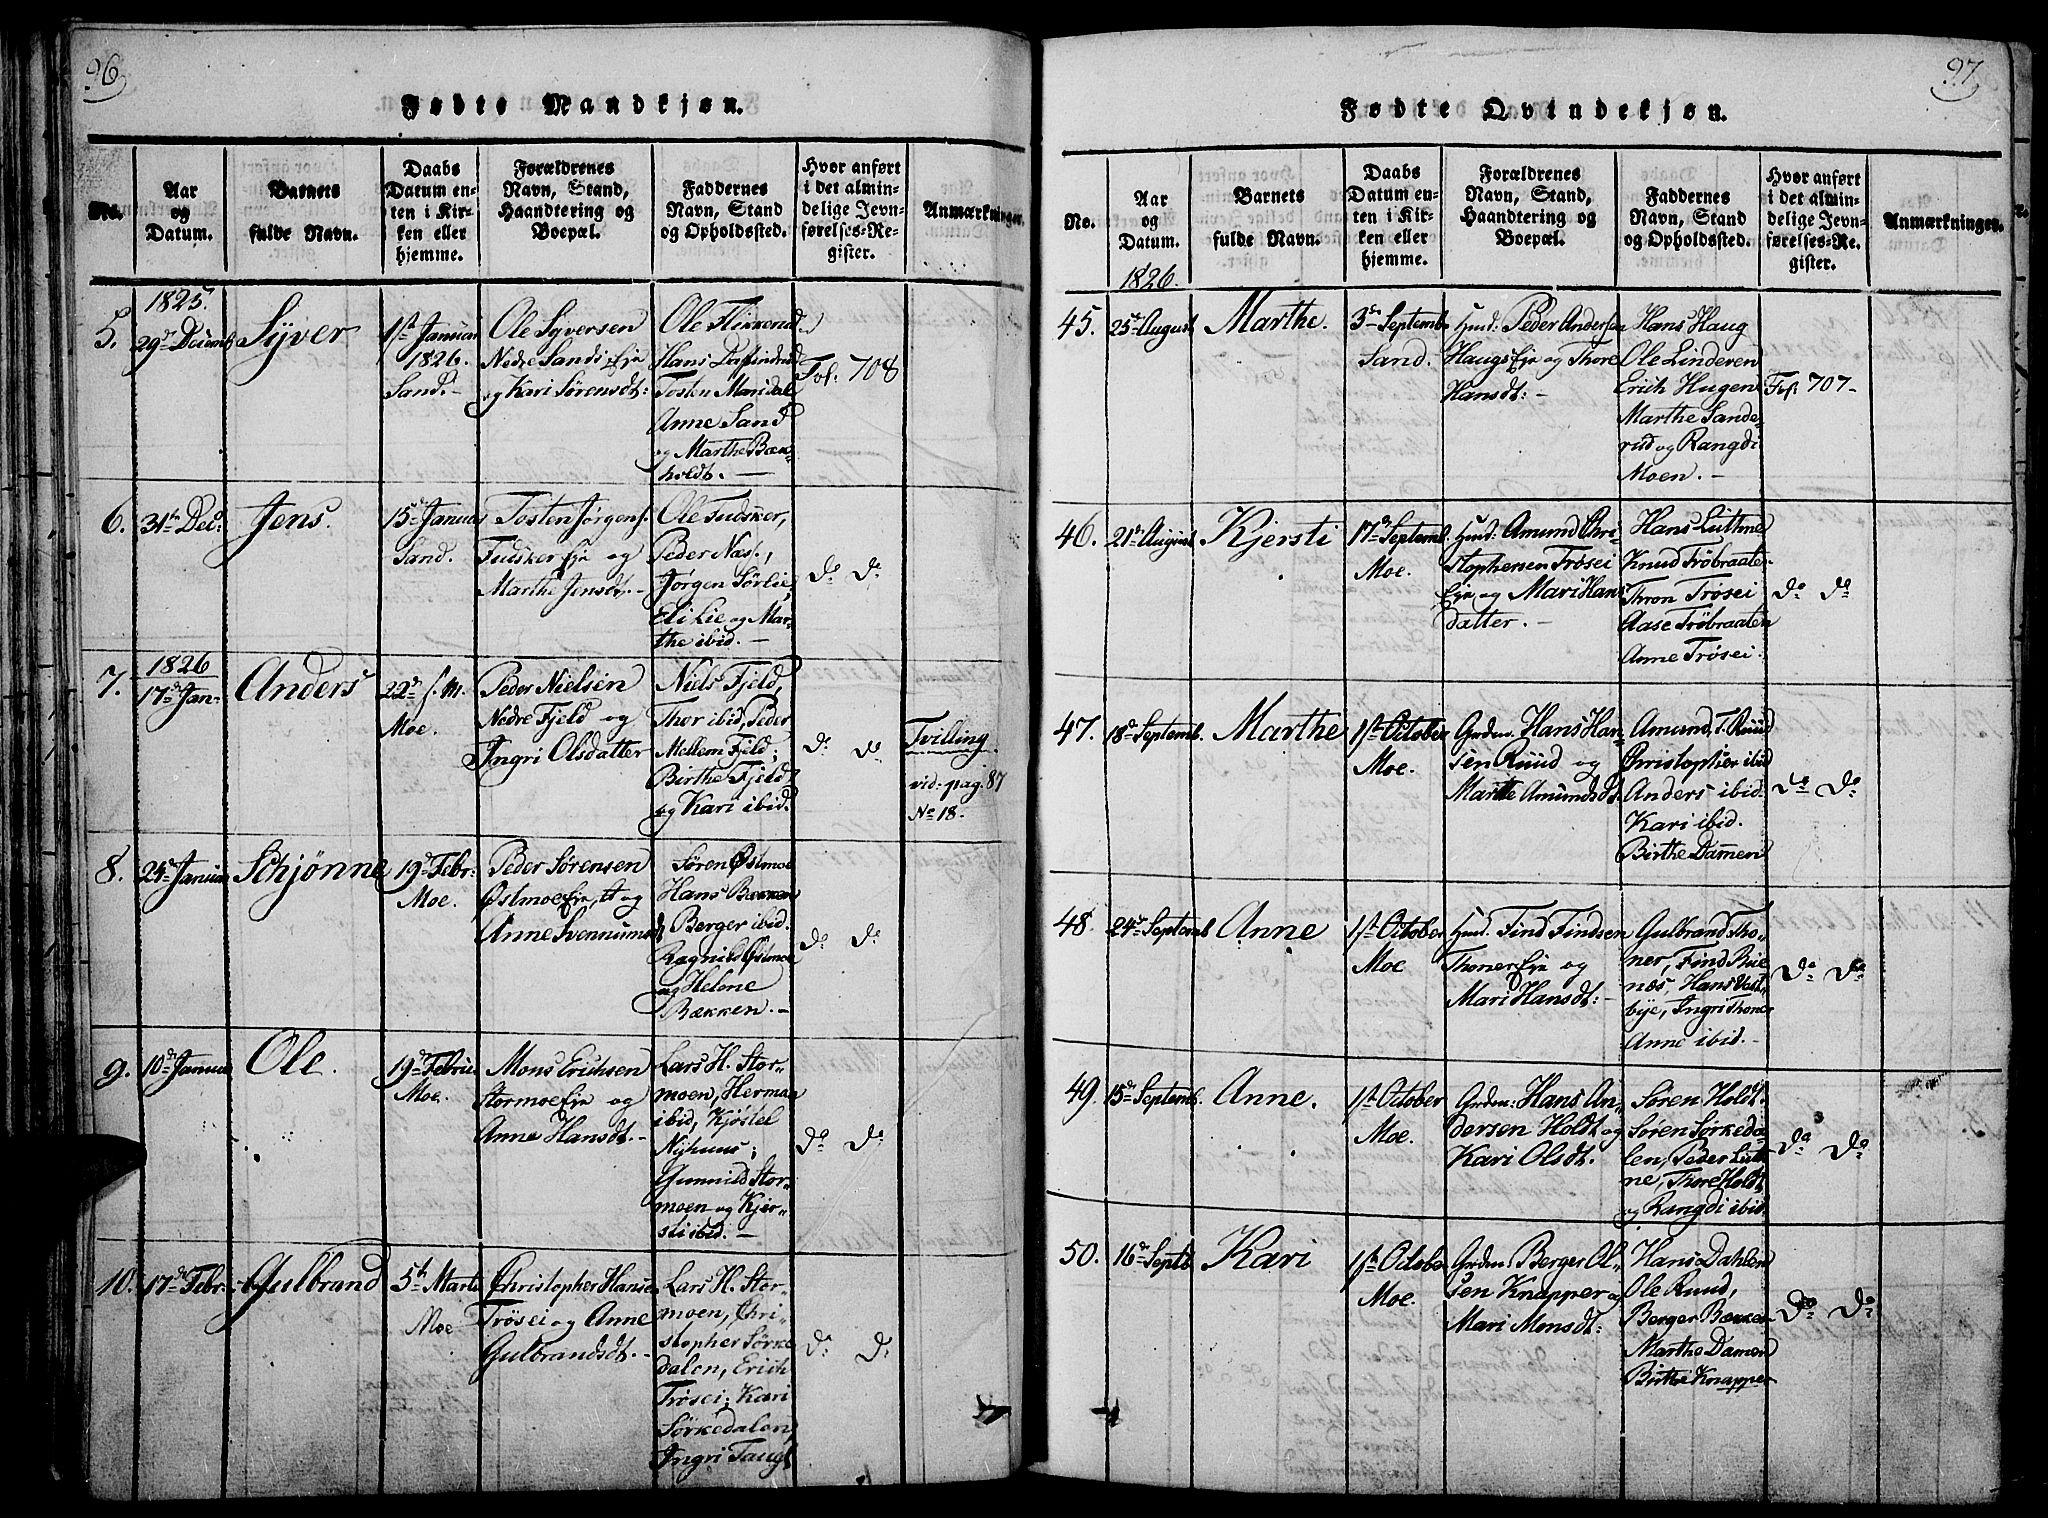 96
Fødte Mandkjøn.
No.
Aar
og
Datum.
Barnets
fulde Navn.
Daabs
Datum en-
ten i Kir-
ken eller
hjemme.
Forældrenes
Navn, Stand,
Haandtering og
Boepæl.
Faddernes
Navn, Stand
og Opholdssted.
Hvor anført
i det almin-
delige Jevn-
førelses-Re-
gister.
Anmærkninger.
5.
1825
29de Decemb
Syver
1ste Januar
1826.
Sand.
Ole Syversen
Nedre Sands Eje
og Kari Sørensdt:
Ole
Hans
Tosten Maridal
Anne Sand
og Marthe Bæn-
holdt.
Fol: 708
6.
31te Dec:
Jens.
15de Januar
Sand.
Tosten Jørgens.
Fudsker Eje og
Marthe Jensdt.
Ole Fudsker,
Peder Næs.,
Jørgen Sørlie;
Eli Lie og Mar-
the ibid.
do do
7.
1826
17de Jan-
Anders
22de s. M.
Moe.
Peder Nielsen
Nedre Fjeld og
Ingri Olsdatter
Niels Fjeld,
Thor ibid, Peder
Mellem Fjeld;
Birthe Fjeld
og Kari ibid.
do do
Tvilling
vid: pag: 87
No 18.
8.
24de Januar
Schjønne
19de Febr:
Moe.
Peder Sørensen
Østmoe Eje, og
Anne Svennumsd
Søren Østmoe
Hans Bækken
Berger ibid.
Ragnild Østmoe
og Helene
Bækken.
do do
9.
10de Januar
Ole.
19de Februe
Moe.
Mons Erichsen
Stormoe Eje og
Anne Hansdt.
Lars H. Stor-
moen, Herman
ibid, Kjøstel
Nyhuus;
Gunnild Stor-
moen og Kjer-
sti ibid.
do do
10.
17de Febr.
Gulbrand
5te Marts
Moe
Christopher Hanse
Trøsei og Anne
Gulbrandsdt.
Lars H. Stor-
moen, Chri-
stopher Sørke
dalen, Erich
Trøsei; Kari
Sørkedalen,
Ingri Taugl
do do
97
Fødte Qvindekjøn.
No.
Aar
og
Datum.
Barnets
fulde Navn.
Daabs
Datum en-
ten i Kir-
ken eller
hjemme.
Forældrenes
Navn, Stand,
Haandtering og
Boepæl.
Faddernes
Navn, Stand
og Opholdssted.
Hvor anført
i det almin-
delige Jevn-
førelses-Re-
gister.
Anmærkninger.
1826.
45.
25de August
Marthe.
3de Septemb
Sand.
Huud: Peder Andersen
Haugs Eje og Thore
Hansdt:
Hans Haug
Ole Linderen
Erich Hugen
Marthe Sande-
rud og Rangdi
Moen.
Fol: 707-
46.
21de August
Kjersti
17de Septemb.
Moe.
Huud: Amund Chri-
stophersen Trøsei
Eje og Mari Hans
datter.
Hans Luthne
Knud Trøbraaten
Thron Trøsei
Aase Trøbraaten
Anne Trøsei.
do do
47.
18de Septemb.
Marthe
1ste October
Moe.
Grdm: Hans Han-
sen Ruud og
Marthe Amundsdt.
Amund T. Ruud
Christopher ibid
Anders ibid
Kari ibid.
Birthe Dammen
do do
48.
24de Septemb
Anne
1ste October
Moe
Huud: Find Findsen
Thoner Eje og
Mari Hansdt:
Gulbrand Tho-
ner, Find Bue-
næs, Hans Vest-
bye, Ingri Thoner
Anne ibid.
do do
49.
15de Septemb.
Anne.
1ste October
Moe.
Grdm: Hans An-
dersen Holdt og
Kari Olsdt.
Søren Holdt.
Søren Sørkeda-
len, Peder Luth-
ne, Thore Holdt
og Rangdi ibid.
do do
50.
16de Septb
Kari
1ste Octobe
Moe.
Grdm: Berger Ol-
sen Knapper og
Mari Monsdt:
Hans Dahlen
Ole Ruud,
Berger Bækken
Marthe Damen
Birthe Knapper
do do